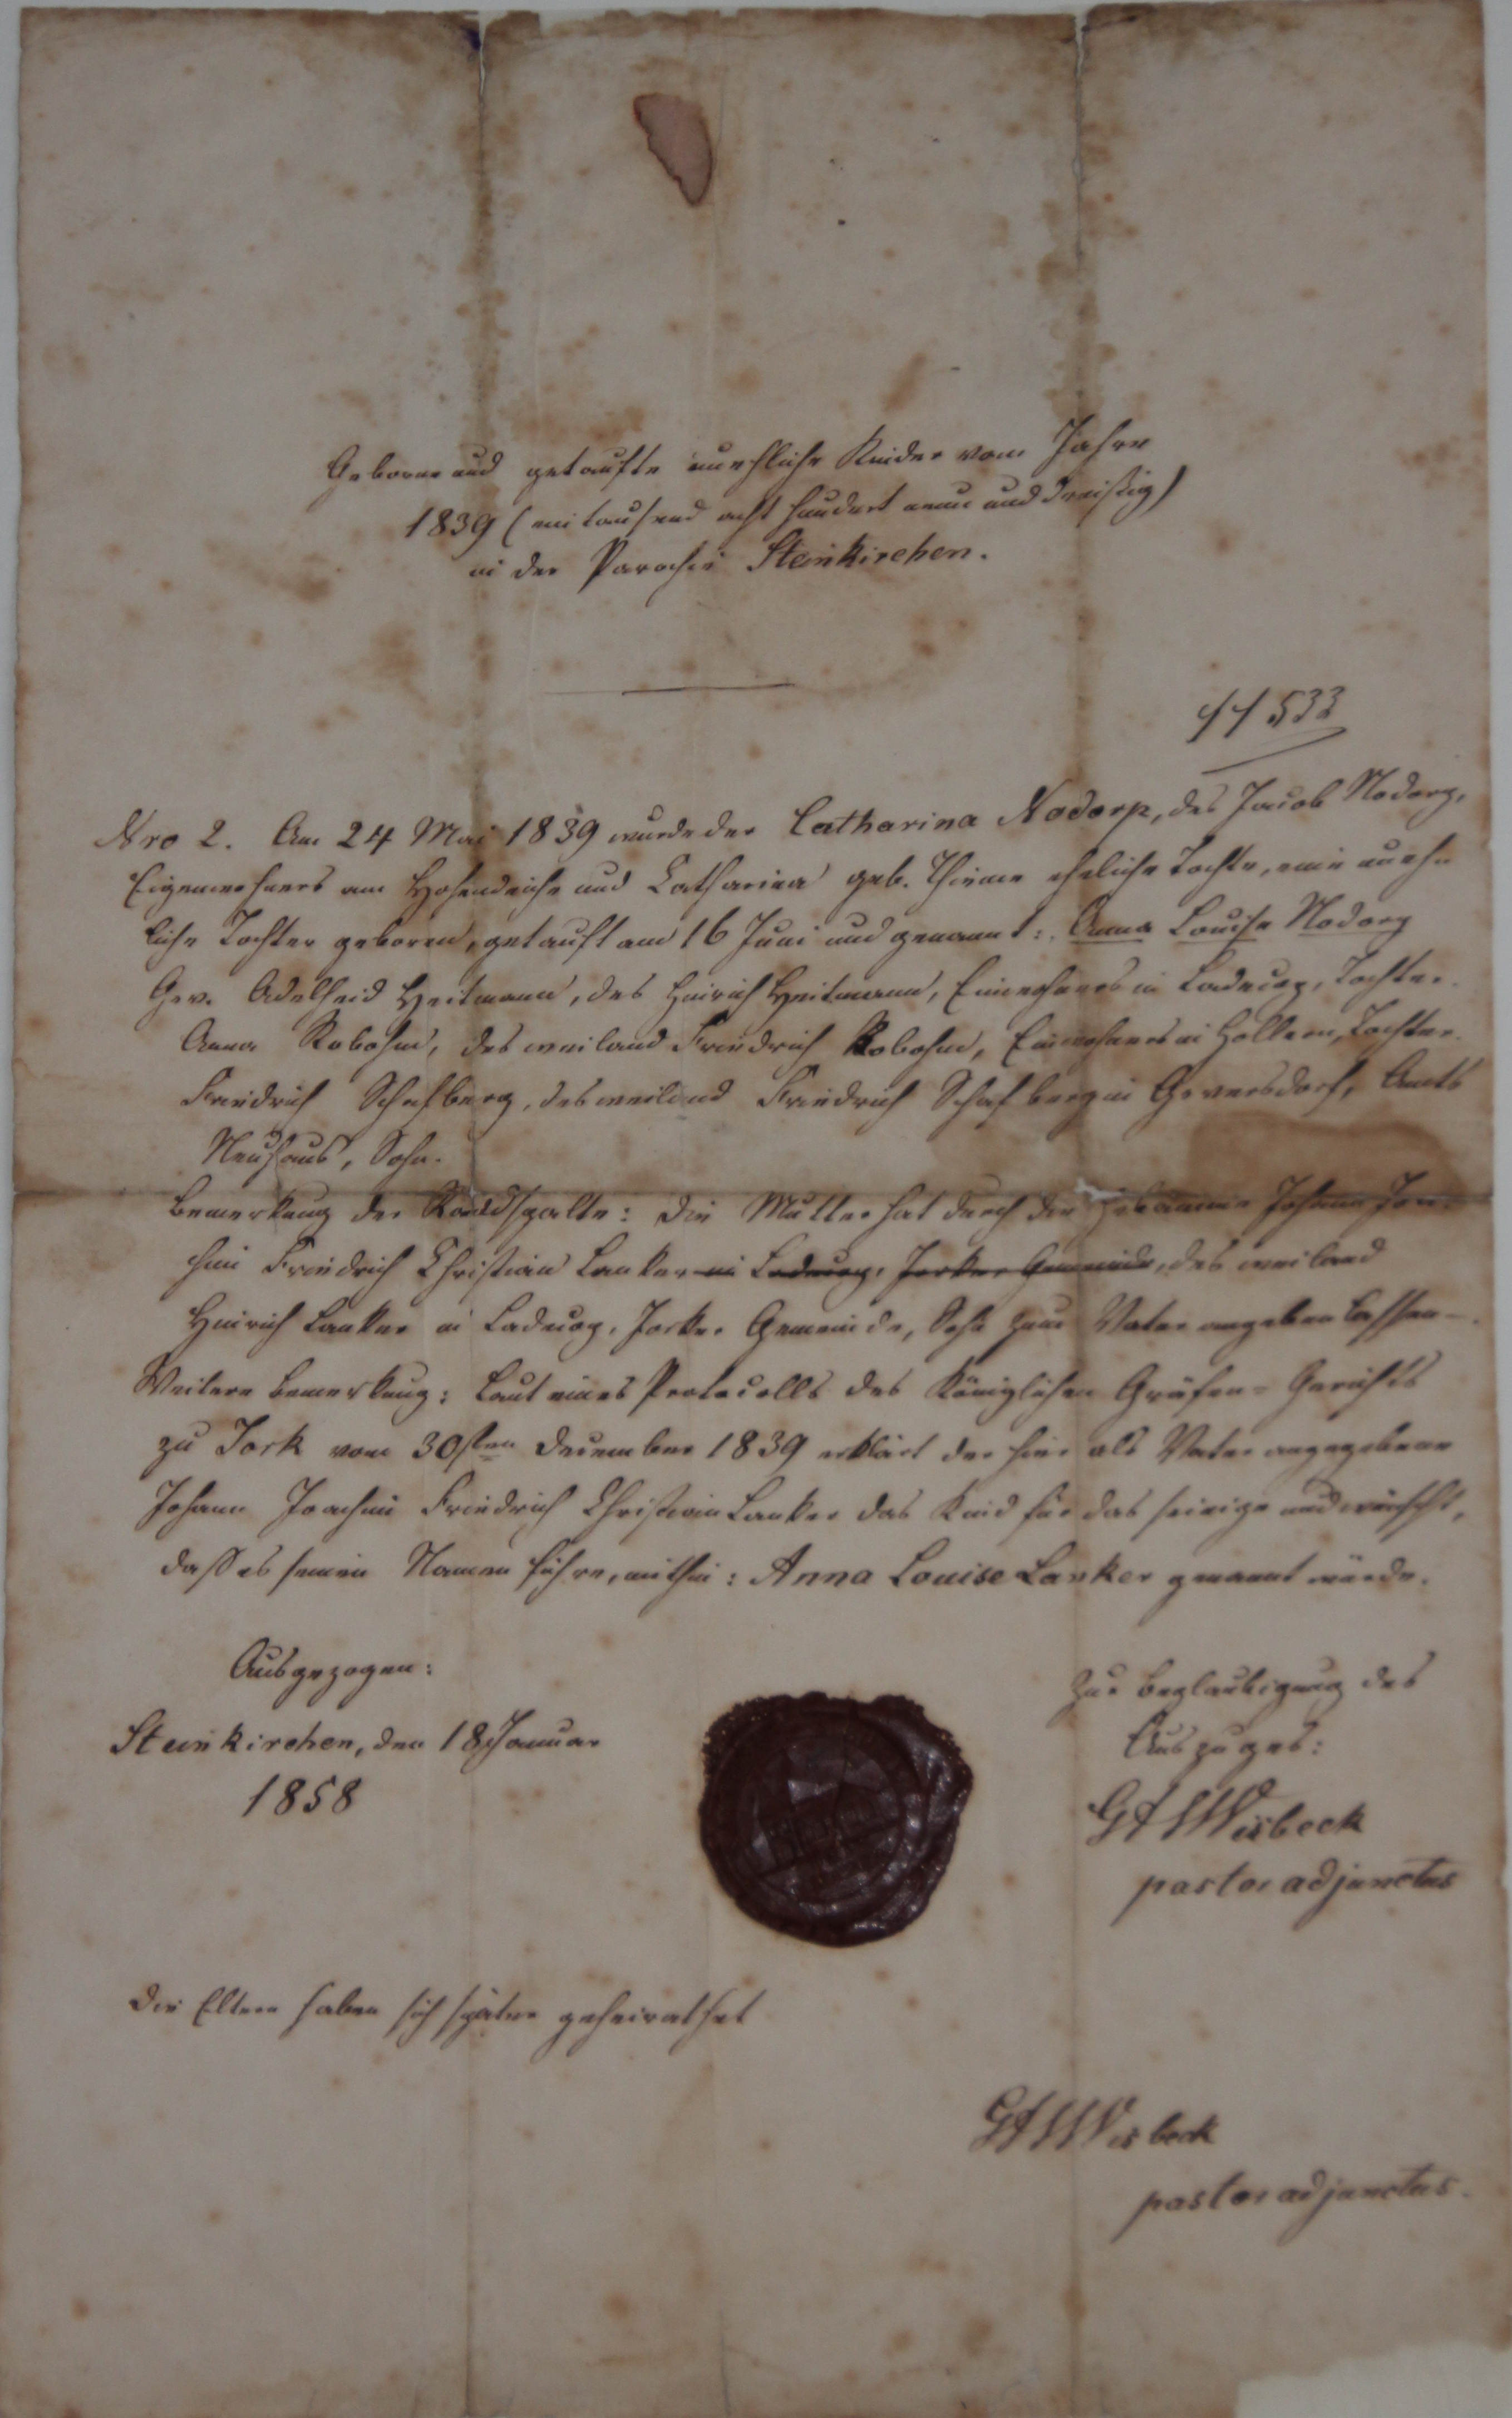 Geborne und getaufte uneheliche Kinder vom Jahre
1839 (eintausend acht hundert neun und dreißig)
in der Parochie Steinkirchen.
533
Nro 2. Am 24 Mai 1839 wurde der Catharina Nodorp, des Jacob Nodorp,
Eigenwohners am Hohendeiche und Catharina geb. Thieme eheliche Tochter, eine unehe
liche Tochter geboren, getauft am 16 Juni und genannt: Anna Louise Nodorp
Gev. Adelheid Heitmann, des Hinrich Heitmann, Einwohners in Ladecop, Tochter.
Anna Robohm, des weiland Friedrich Robohm, Einwohners in Hollern, Tochter.
Friedrich Schafberg, des weiland Friedrich Schafberg in Geversdorf, Amts
Neuhaus, Sohn.
Bemerkung der Randspalte: die Mutter hat durch die Hebamme Johann Joa-
chim Friedrich Christian Lanker in Ladecop, Jorker Gemeinde, des weiland
Hinrich Lanker in Ladecop, Jorker Gemeinde, Sohn zum Vater angeben lassen –.
Weitere Bemerkung: Laut eines Protocolls des Königlichen Gräfen-Gerichts
zu Jork vom 30sten December 1839 erklärt der hier als Vater angegebene
Johann Joachim Friedrich Christian Lanker das Kind für das seinige und wünscht,
daß es seinen Namen führe, mithin: Anna Louise Lanker genannt würde.
Ausgezogen:
Steinkirchen, den 18 Januar
1858
Zur Beglaubigung des
Auszuges:
Wisbeck
pastor adjunctus
Die Eltern haben sich später geheirathet
Wisbeck
pastor adjunctus.